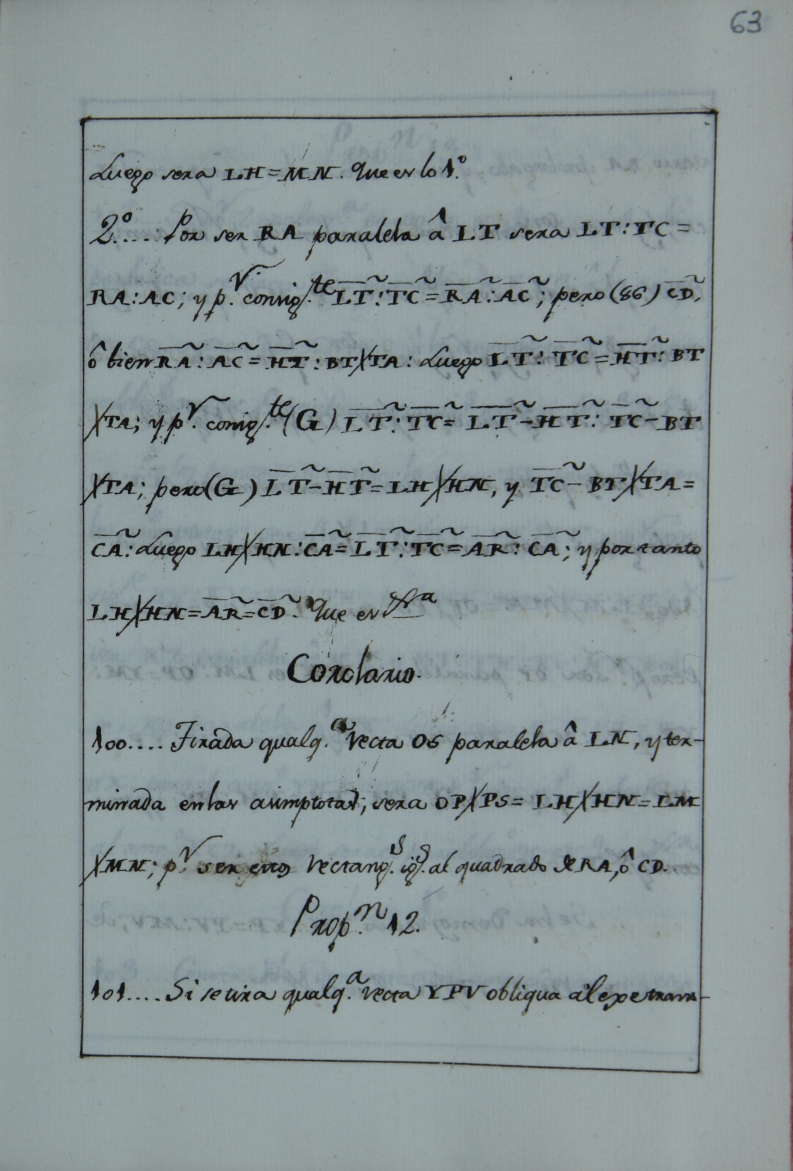 63
Luego sera LH=MN. Que es lo 1.º
2.º.... Por ser RA paralela â LT sera LT:TC=
RA:AC; y p.r consig.te L̅T̅~:T̅C̅~=R̅A̅~:A̅C̅~; pero (86) C̅D̅~,
ô bien R̅A̅~:A̅C̅~=H̅T̅~:BT╳TA: Luego L̅T̅~:T̅C̅~=H̅T̅~:BT
╳TA; y p.r consig.te (G) L̅T̅~:T̅C̅~=L̅T̅~-H̅T̅~:T̅C̅~-BT
╳TA; pero (G) L̅T̅~-H̅T̅~=LH╳HN, y T̅C̅~-BT╳TA=
C̅A̅~: Luego LH╳HN:C̅A̅~=L̅T̅~:T̅C̅~=A̅R̅~:C̅A̅~; y por tanto
LH╳HN=A̅R̅~=C̅D̅~. Que es
Corolario.
100.... Tirada qualq.a recta OS paralela â LN, y ter-
minada en las asimptotas; sera OP╳PS=LH╳HN=LM
╳MN; p.r ser estos rectang.s ig.s al quadrado de RA, ô CD.
Prop.n 12.
101.... Si se tira qualq.a recta YPV obliqua al exe tram-